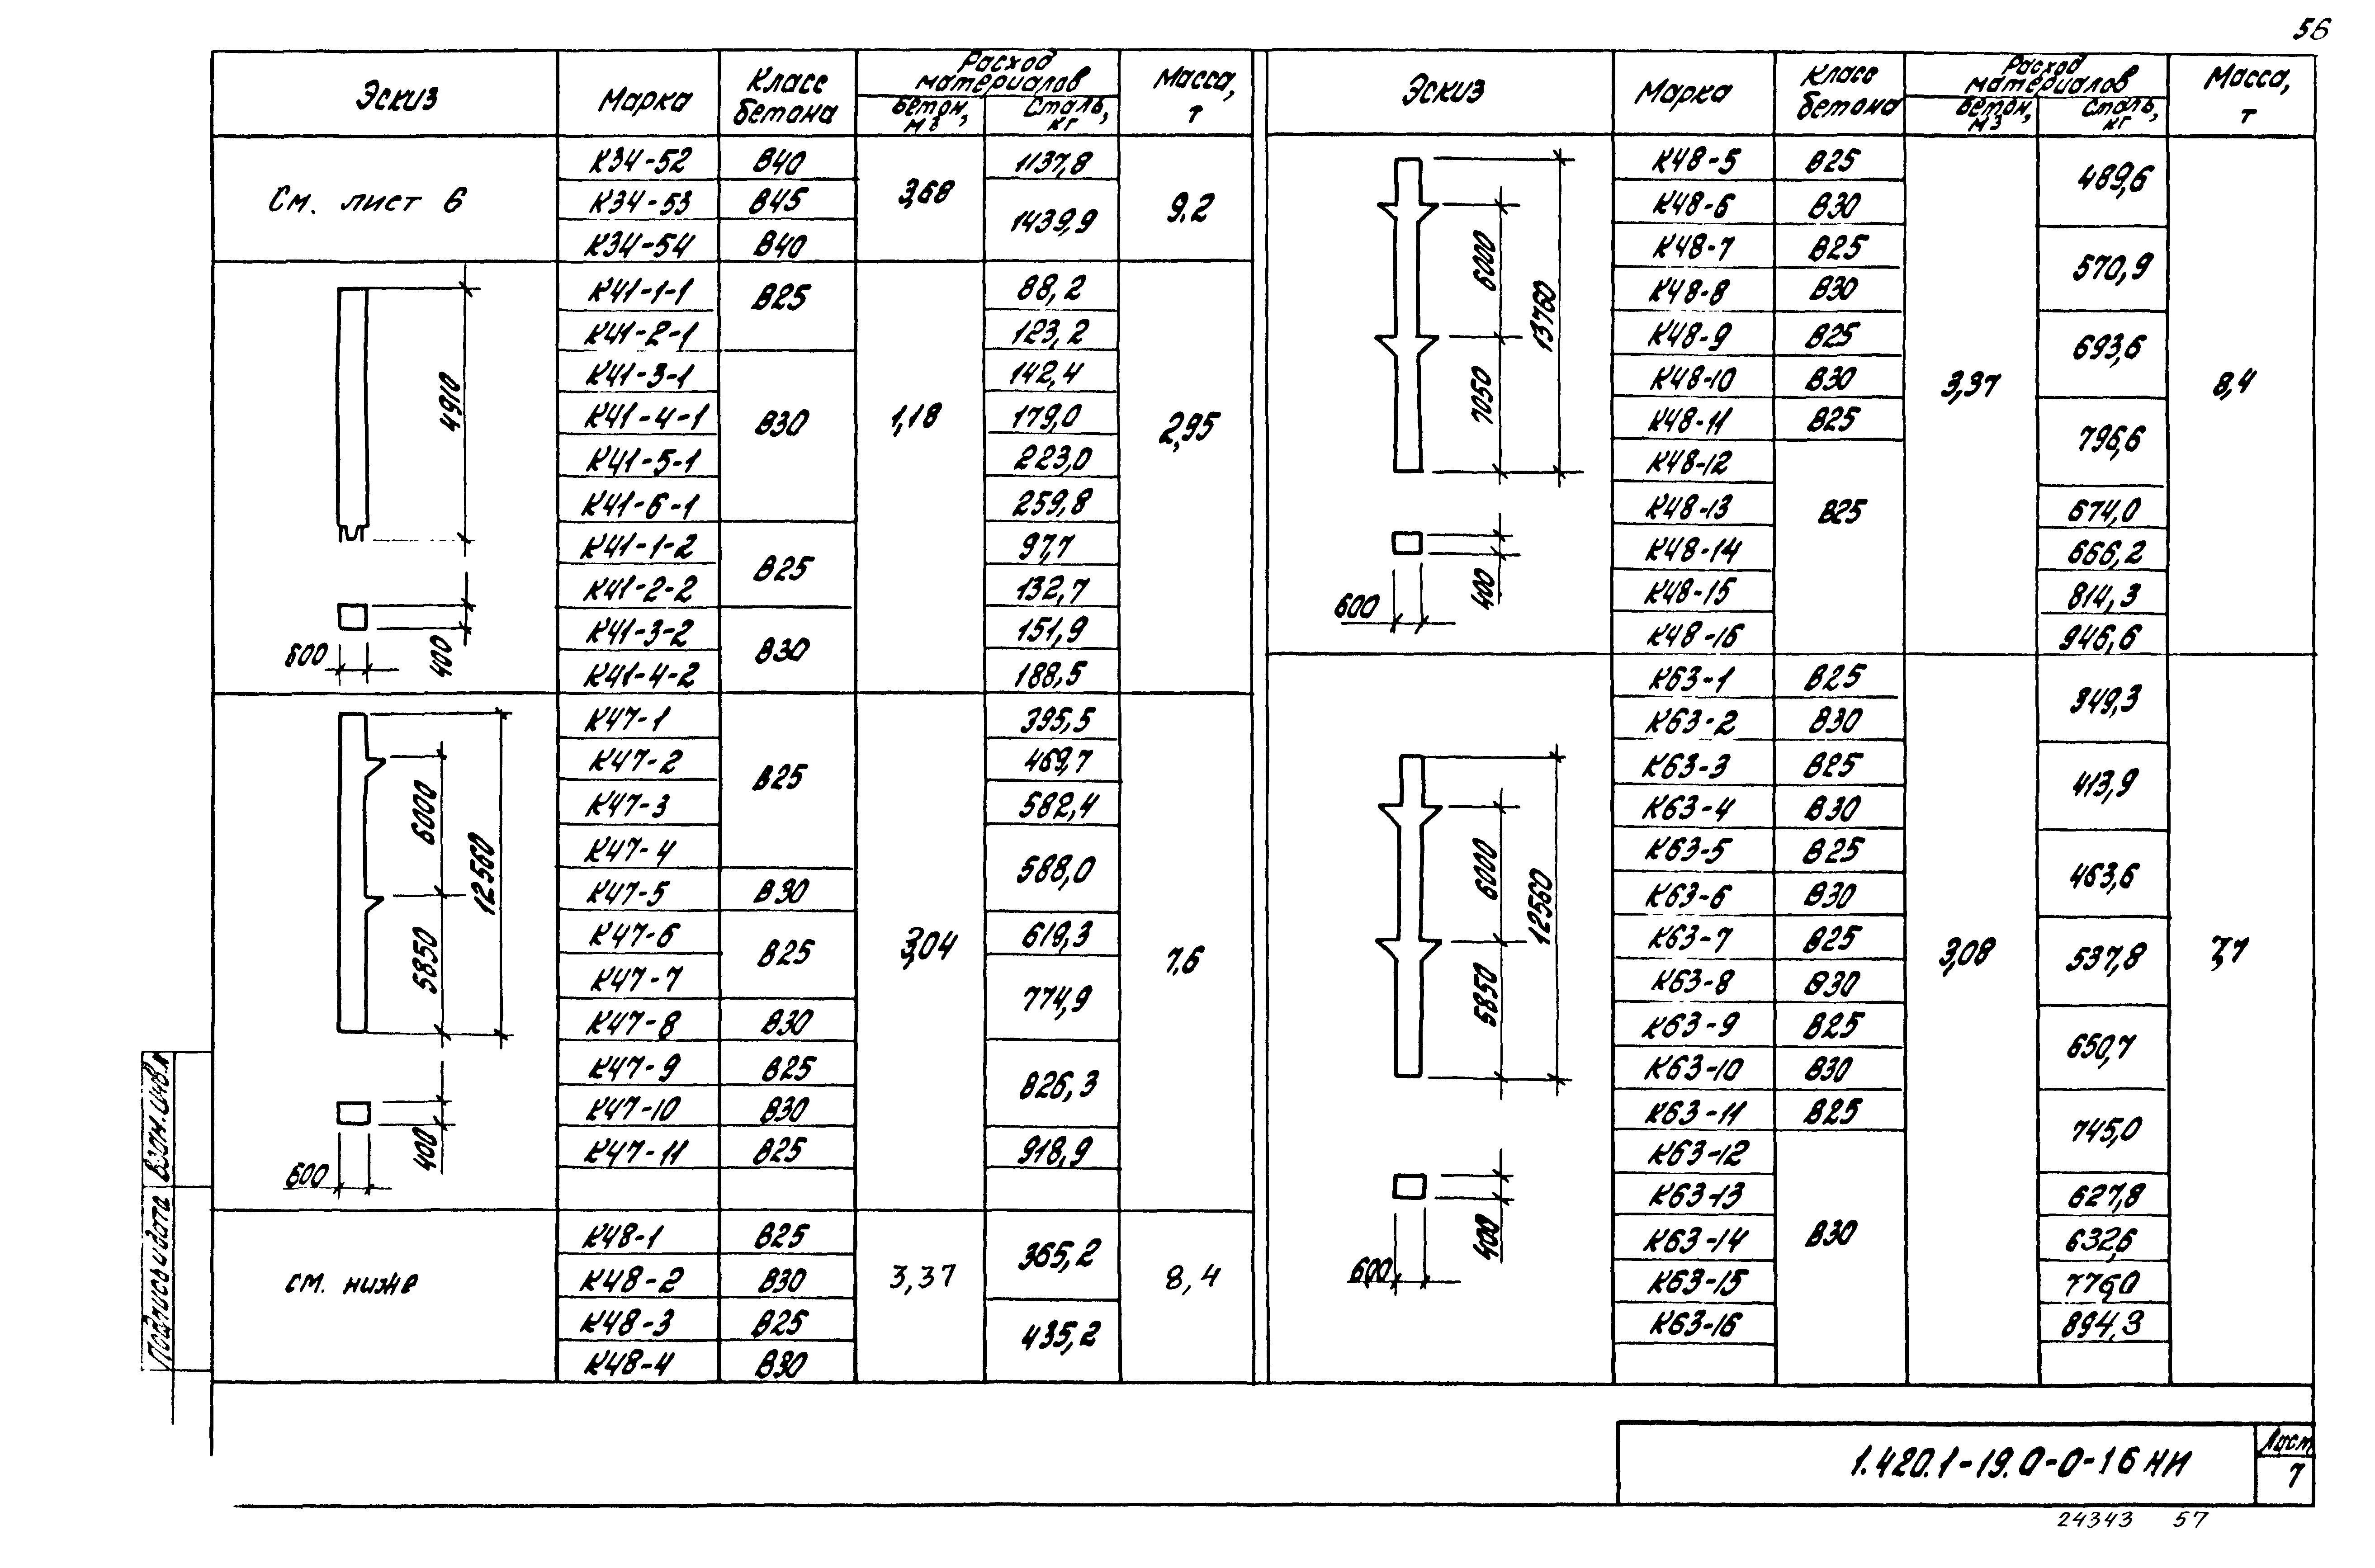 56
Эскиз Марка Класс бетона Расход материалов Масса, т
бетон, м3 Сталь, кг
См. лист 6
К34-52 В40 3,68 1137,8 9,2
К34-53 В45 1439,9
К34-54 В40
4910
400
600
К41-1-1 В25 1,18 88,2 2,95
К41-2-1 123,2
К41-3-1 В30 142,4
К41-4-1 179,0
К41-5-1 223,0
К41-6-1 259,8
К41-1-2 В25 97,7
К41-2-2 132,7
К41-3-2 В30 151,9
К41-4-2 188,5
6000
12560
5850
400
600
К47-1 В25 3,04 395,5 7,6
К47-2 469,7
К47-3 582,4
К47-4 588,0
К47-5 В30
К47-6 В25 619,3
К47-7 774,9
К47-8 В30
К47-9 В25 826,3
К47-10 В30
К47-11 В25 918,9
см. ниже
К48-1 В25 3,37 365,2 8,4
К48-2 В30
К48-3 В25 435,2
К48-4 В30
Эскиз Марка Класс бетона Расход материалов Масса, т
бетон, м3 Сталь, кг
6000
13760
7050
400
600
К48-5 В25 3,37 489,6 8,4
К48-6 В30
К48-7 В25 570,9
К48-8 В30
К48-9 В25 693,6
К48-10 В30
К48-11 В25 796,6
К48-12 В25
К48-13 674,0
К48-14 666,2
К48-15 814,3
К48-16 946,6
6000
12560
5850
400
600
К63-1 В25 3,08 349,3 7,7
К63-2 В30
К63-3 В25 413,9
К63-4 В30
К63-5 В25 463,6
К63-6 В30
К63-7 В25 537,8
К63-8 В30
К63-9 В25 650,7
К63-10 В30
К63-11 В25 745,0
К63-12 В30
К63-13 627,8
К63-14 632,6
К63-15 776,0
К63-16 894,3
Подпись и дата Взам. инв. №
1.420.1-19.0-0-16 НИ
Лист
7
24343 57